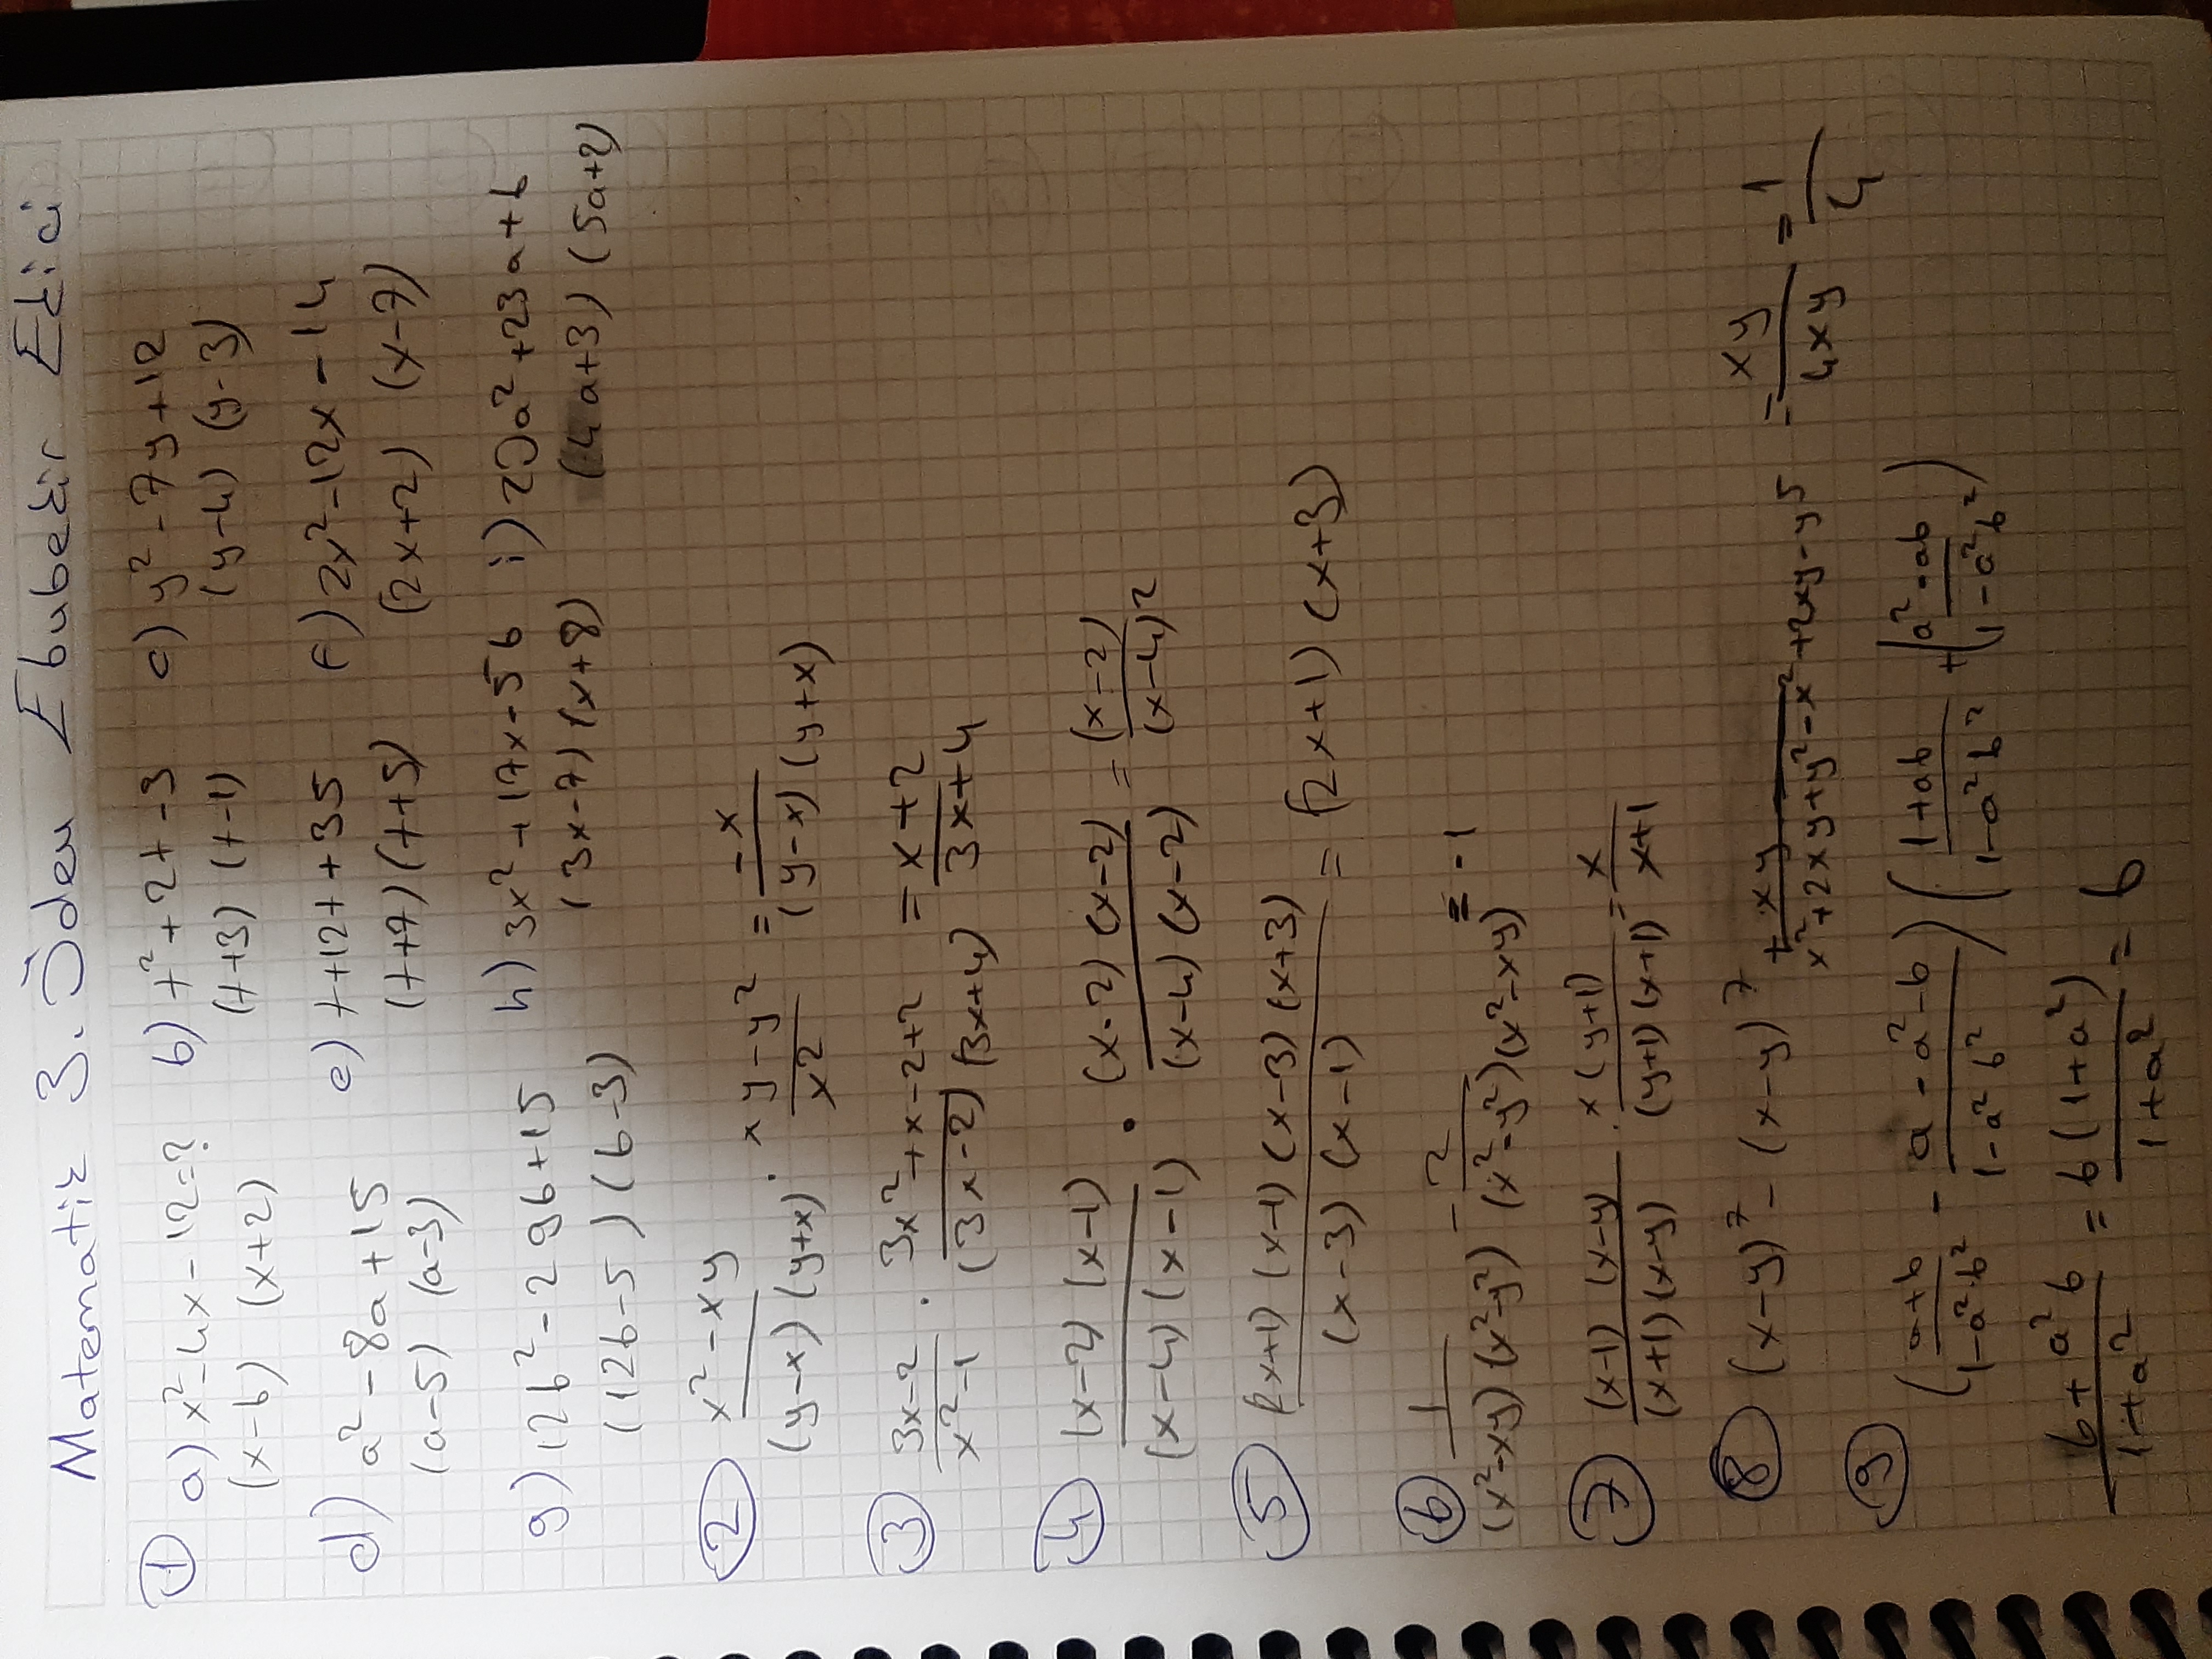 Matematik 3. Ödev Ebubekir Ekici
① a) x²-4x-12=? b) t²+2t-3 c) y²-7y+12
(x-6) (x+2) (t+3) (t-1) (y-4) (y-3)
d) a²-8a+15 e) t+12t+35 f) 2x²-12x-14
(a-5) (a-3) (t+7)(t+5) (2x+2) (x-7)
g) 12b²-29b+15 h) 3x²+17x-56 i) 20a²+23a+6
(12b-5)(b-3) (3x-7)(x+8) (4a+3) (5a+2)
② x²-xy / (y-x)(y+x) . xy-y² / x² = -x / (y-x)(y+x)
③ 3x-2 / x²-1 . 3x²+x-2+2 / (3x-2)(3x+4) = x+2 / 3x+4
④ (x-2)(x-1) / (x-4)(x-1) . (x-2)(x-2) / (x-4)(x-2) = (x-2) / (x-4)²
⑤ (2x+1)(x-1)(x-3)(x+3) / (x-3)(x-1) = (2x+1)(x+3)
⑥ 1 / (x²-xy)(x²-y²) - 2 / (x²-y²)(x²-xy) = -1
⑦ (x-1)(x-y) / (x+1)(x-y) . x(y+1) / (y+1)(x+1) = x / x+1
⑧ (x-y)⁷ - (x-y)⁷ + xy / x²+2xy+y²-x²+2xy-y5 = xy / 4xy = 1 / 4
⑨ (a+b / 1-a²b² - a-a²-b / 1-a²b²) (1+ab / 1-a²b² + (a²-ab / 1-a²b²)
b+a²b / 1+a² = b(1+a²) / 1+a² = b